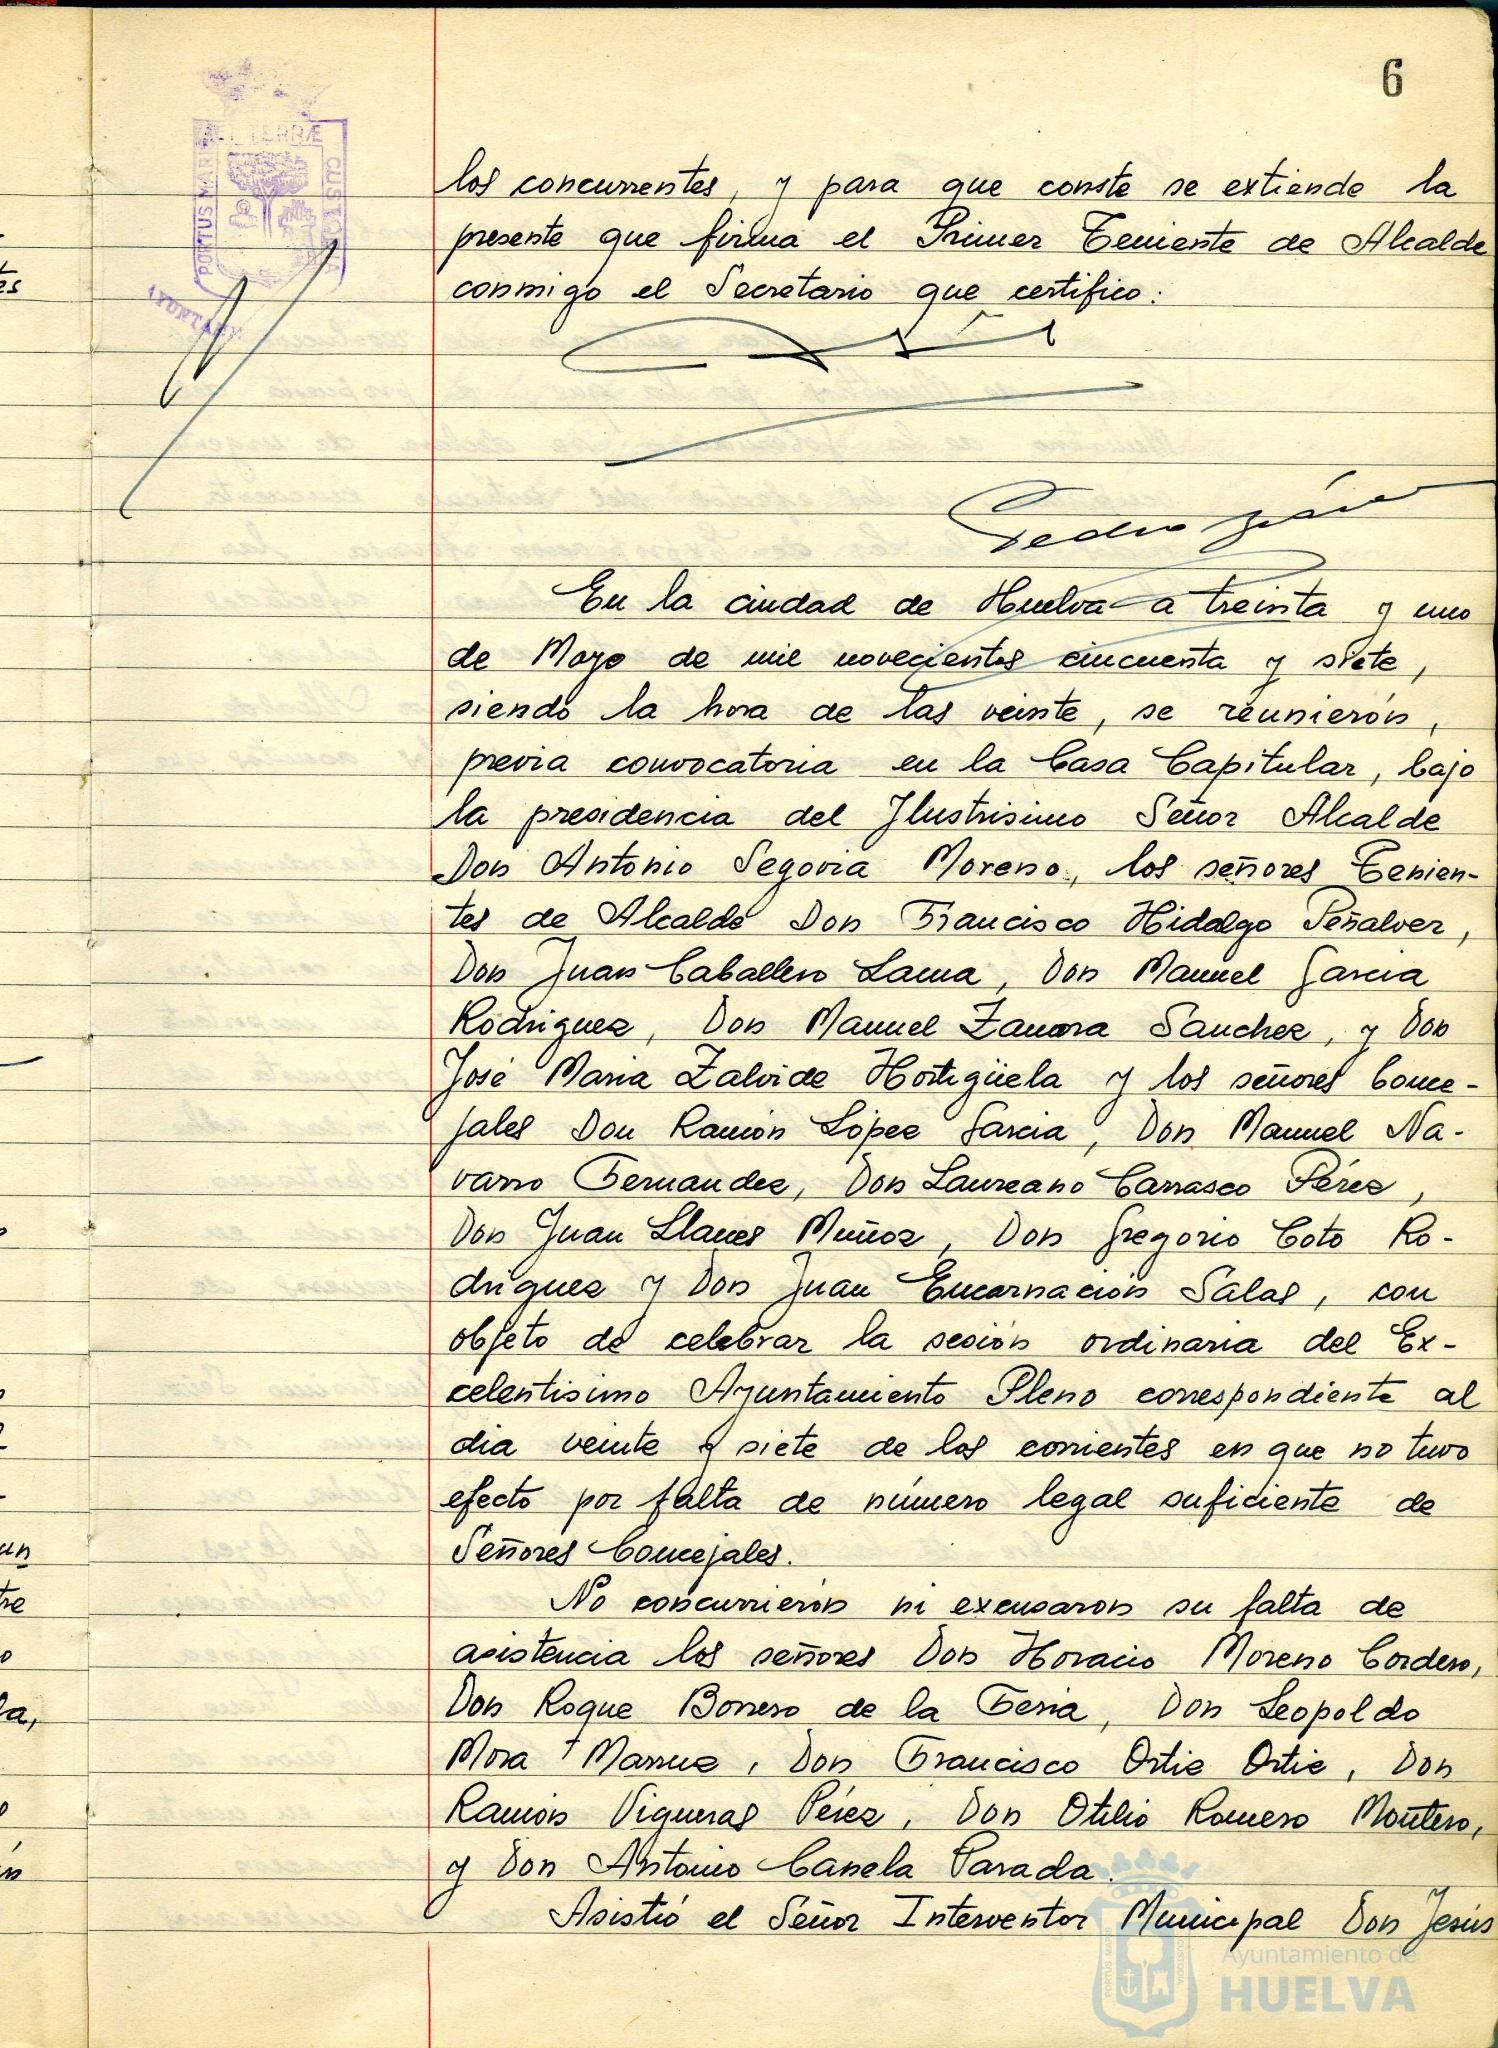 6
ET TERRÆ
PORTUS MARIS
CUSTODIA
los concurrentes, y para que conste se extiende la
presente que firma el Primer Teniente de Alcalde
conmigo el Secretario que certifico:
Pedro
En la ciudad de Huelva a treinta y uno
de Mayo de mil novecientos cincuenta y siete,
siendo la hora de las veinte, se reunierón,
previa convocatoria en la Casa Capitular, bajo
la presidencia del Ilustrisimo Señor Alcalde
Don Antonio Segovia Moreno, los señores Tenien-
tes de Alcalde Don Francisco Hidalgo Peñalver,
Don Juan Caballero Lama, Don Manuel Garcia
Rodriguez, Don Manuel Zamora Sanchez, y Don
José Maria Zalvide Hortigüela y los señores Conce-
jales Don Ramón López Garcia, Don Manuel Na-
varro Fernandez, Don Laureano Carrasco Pérez,
Don Juan Llanes Muñoz, Don Gregorio Coto Ro-
driguez y Don Juan Encarnación Salas, con
objeto de celebrar la sesión ordinaria del Ex-
celentisimo Ayuntamiento Pleno correspondiente al
dia veinte y siete de los corrientes en que no tuvo
efecto por falta de número legal suficiente de
Señores Concejales.
No concurrierón ni excusaron su falta de
asistencia los señores Don Horacio Moreno Cordero,
Don Roque Borrero de la Feria, Don Leopoldo
Mora Marruz, Don Francisco Ortiz Ortiz, Don
Ramón Vigueras Pérez, Don Otilio Romero Montero,
y Don Antonio Canela Parada.
Asistió el Señor Interventor Municipal Don Jesús
Ayuntamiento de
HUELVA